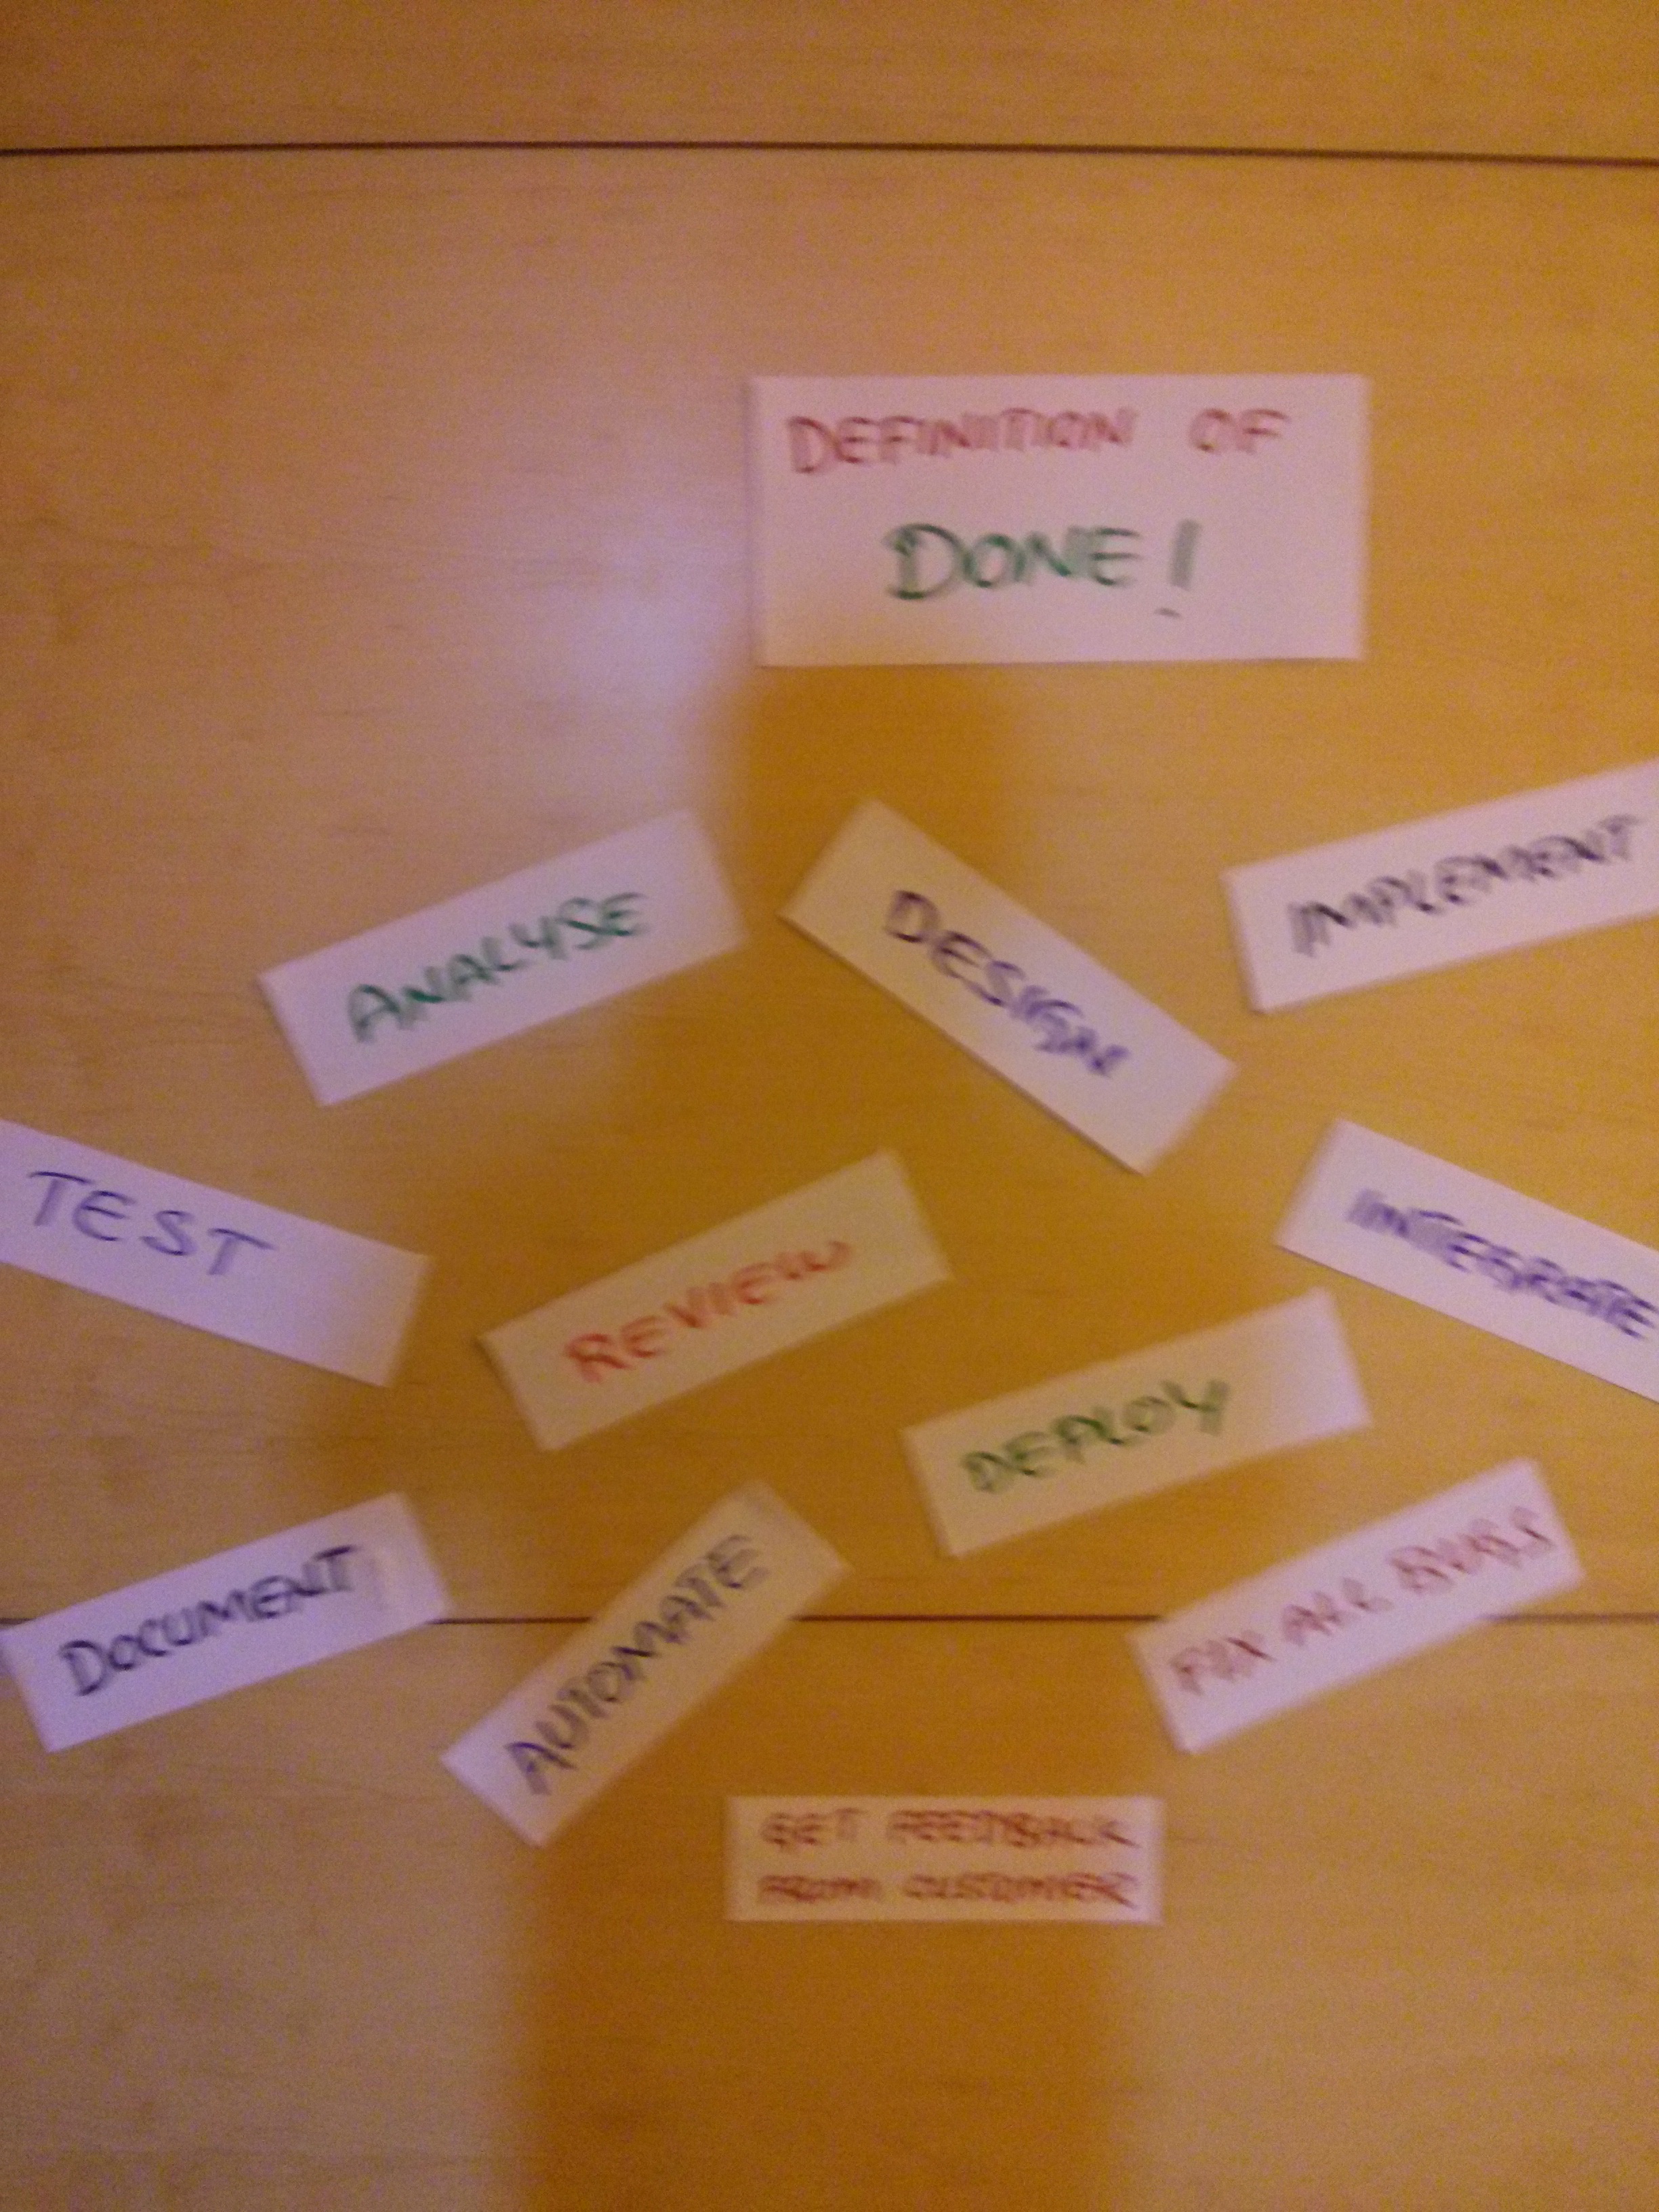 DEFINITION OF
DONE!
ANALYSE
DESIGN
IMPLEMENT
TEST
REVIEW
INTEGRATE
DEPLOY
DOCUMENT
AUTOMATE
FIX ALL BUGS
GET FEEDBACK
FROM CUSTOMER